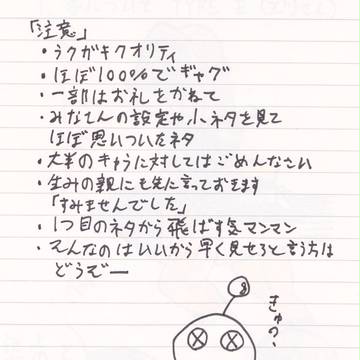 「注意」
・ラクガキクオリティ
・ほぼ100%でギャグ
・一部はお礼をかねて
・みなさんの設定や小ネタを見て
ほぼ思いついたネタ
・大半のキャラに対してはごめんなさい
・生みの親にも先に言っておきます
「すみませんでした」
・1つ目のネタから飛ばす気マンマン
・そんなのはいいから早く見せろと言う方は
どうぞー
きゅ?